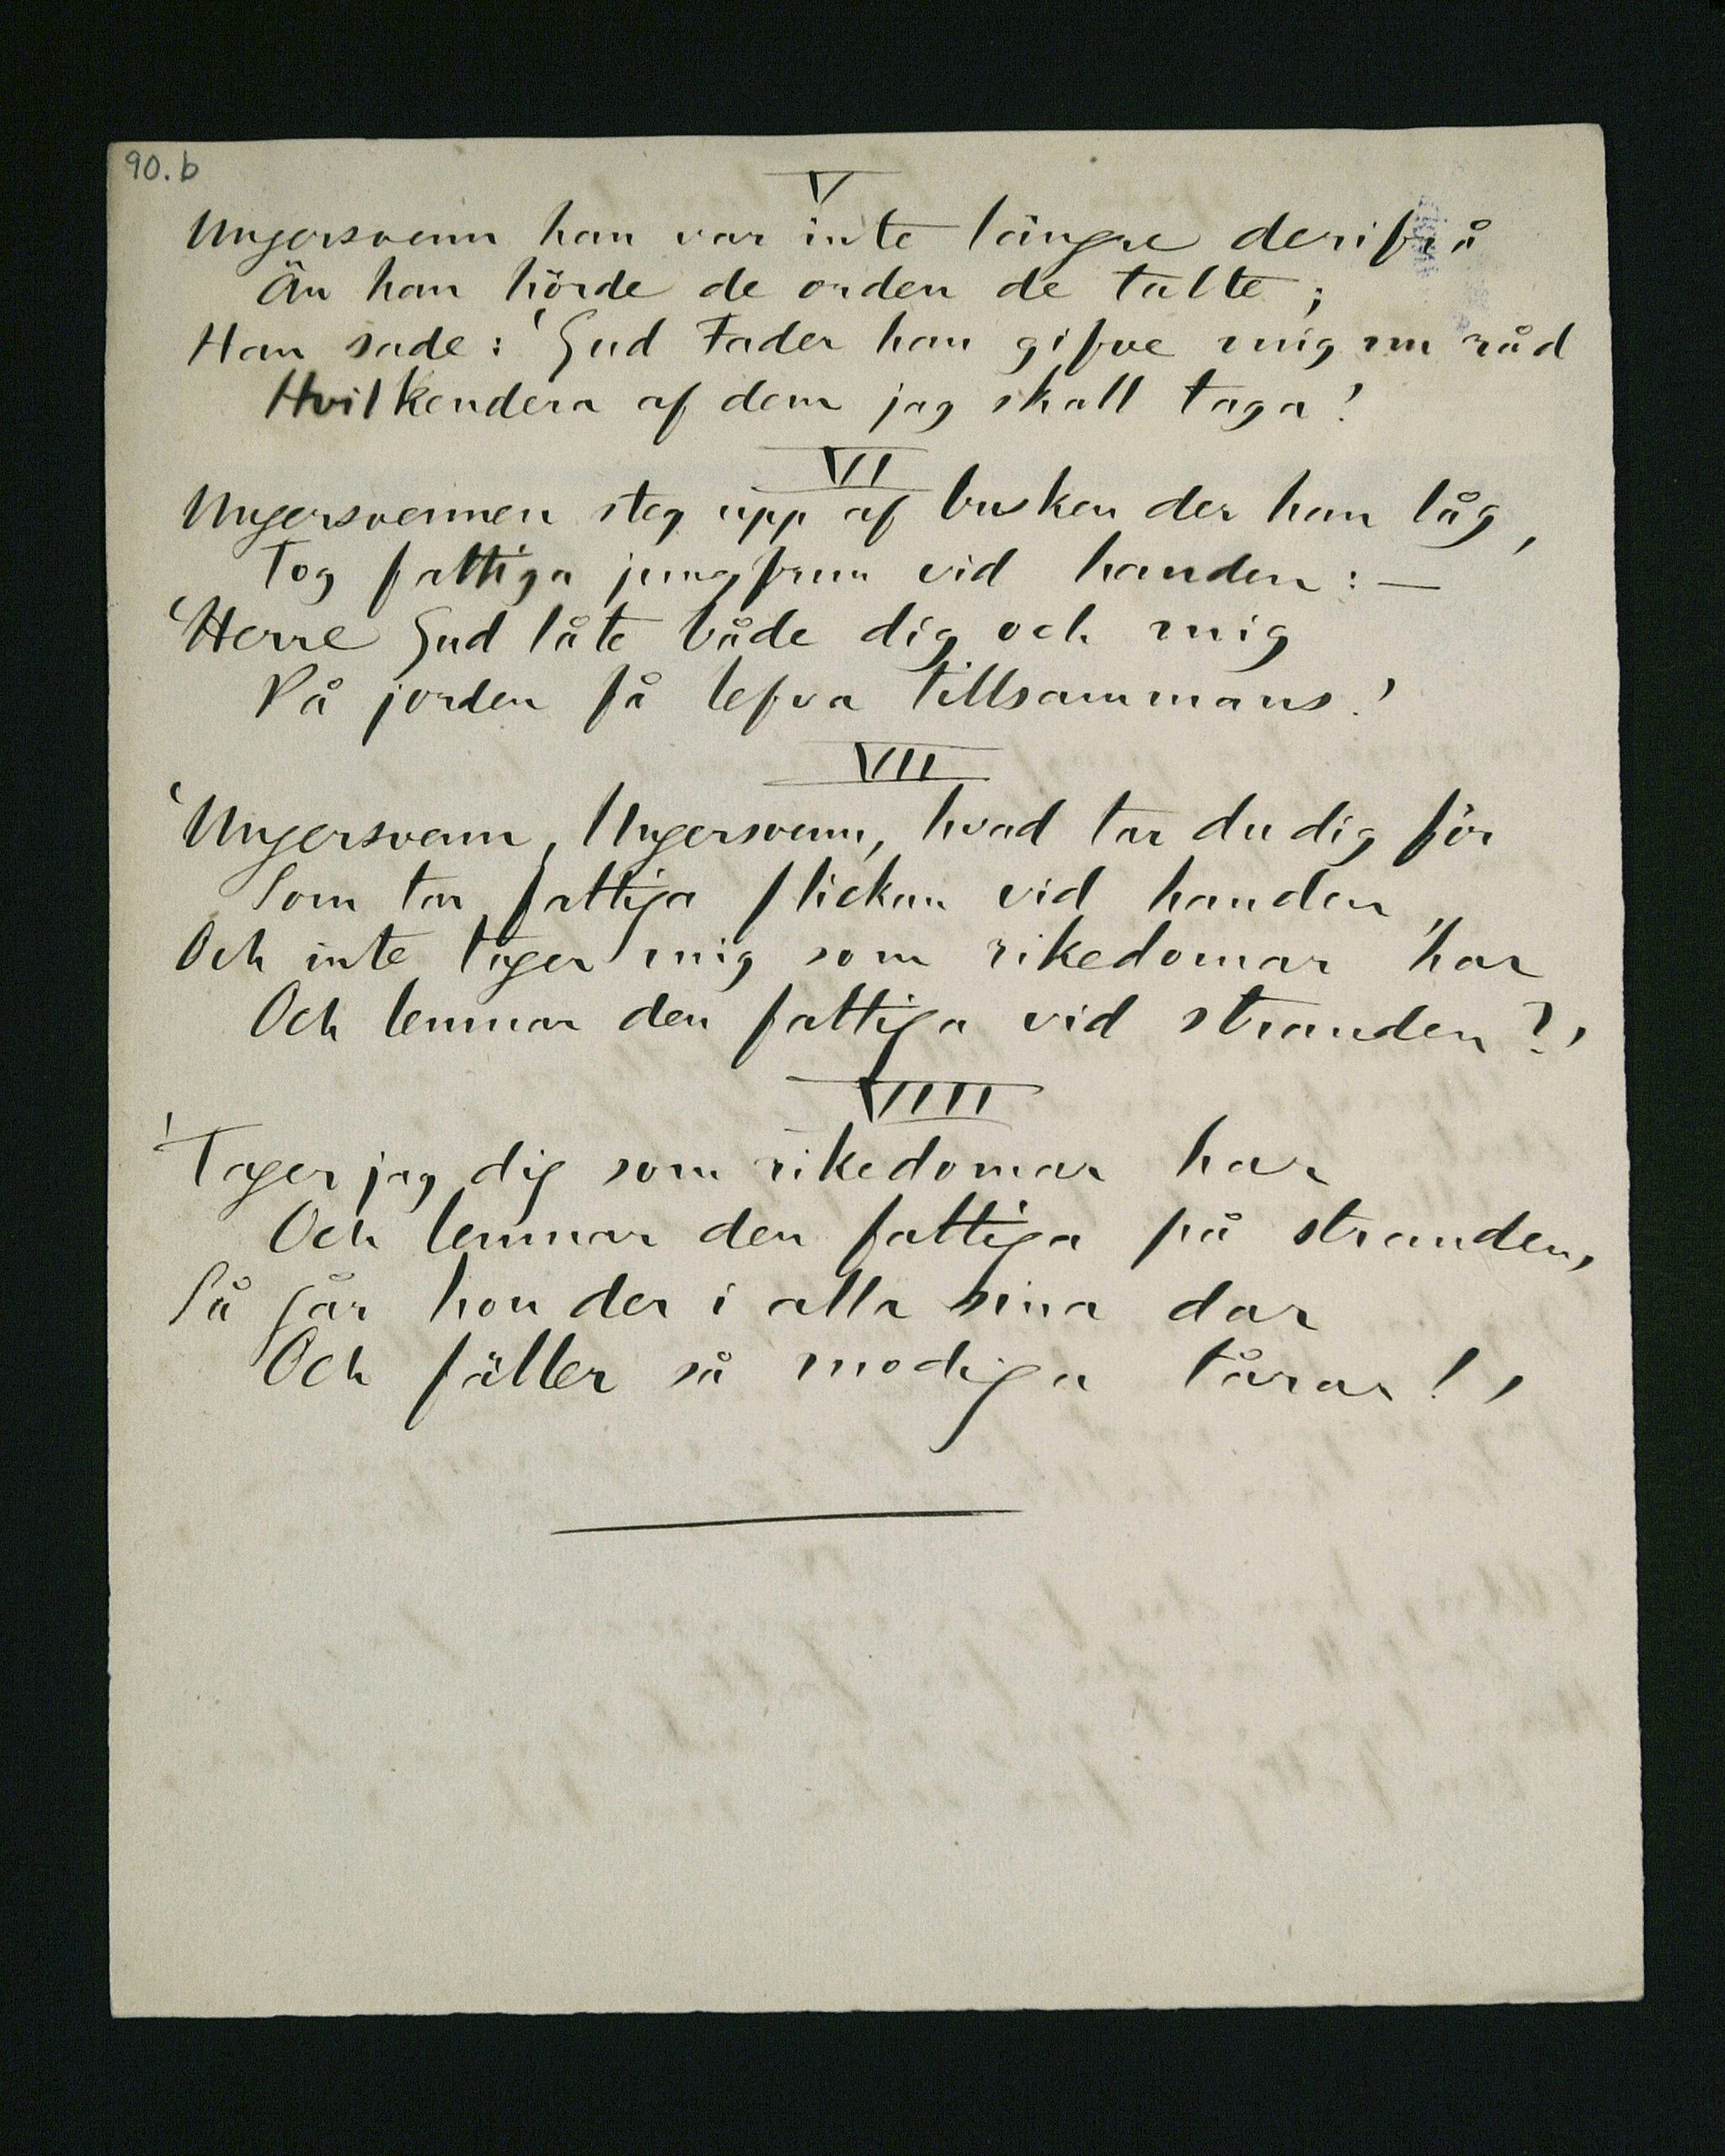 90.b
V
Ungersvenn han var inte längre derifrå
Än han hörde de orden de talte;
Han sade: 'Gud Fader han gifve mig nu råd
Hvilkendera af dem jag skall taga!'
VI
Ungersvennen steg upp af busken der han låg,
Tog fattiga jungfrun vid handen: —
'Herre Gud låte både dig och mig
På jorden få lefva tillsammans!'
VII
'Ungersvenn, Ungersvenn, hvad tar du dig för
Som tar fattiga flickan vid handen
Och inte tager mig som rikedomar har
Och lemnar den fattiga vid stranden?'
VIIII
'Tager jag dig som rikedomar har
Och lemnar den fattiga på stranden,
Så går hon der i alla sina dar
Och fäller så modiga tårar!'